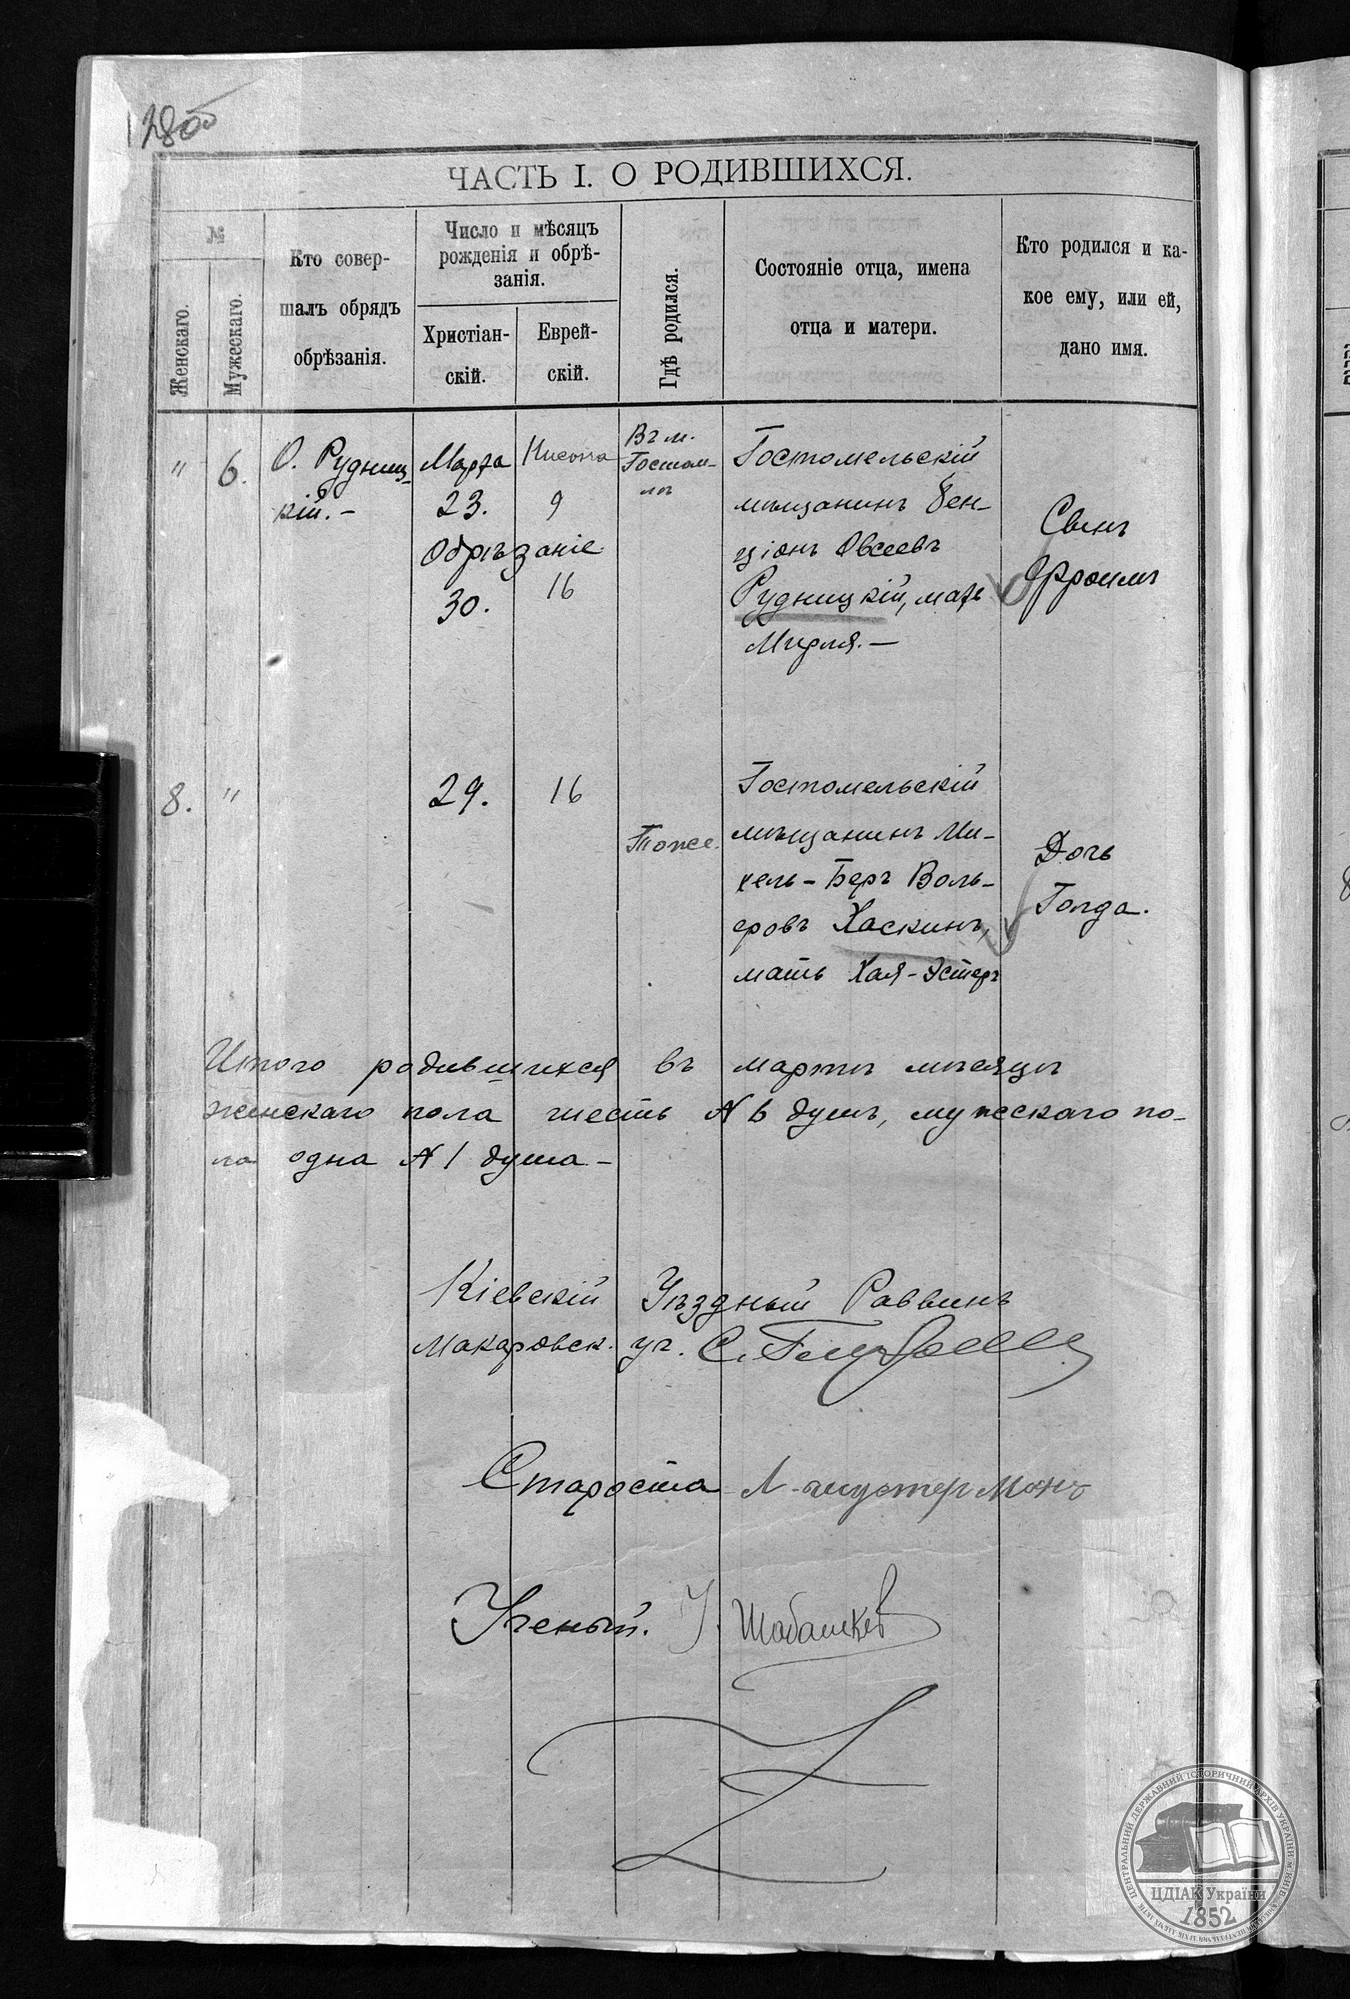 280
ЧАСТЬ I. О РОДИВШИХСЯ.
№
Женскаго.
Мужескаго.
Кто совер-
шалъ обрядъ
обрѣзанія.
Число и мѣсяцъ
рожденія и обрѣ-
занія.
Христіан-
скій.
Еврей-
скій.
Гдѣ родился.
Состояніе отца, имена
отца и матери.
Кто родился и ка-
кое ему, или ей,
дано имя.
" 6.
О. Рудниц-
кій.-
Марта
23.
Обрѣзаніе
30.
Нисона
9
16
Въ м.
Гостом-
лѣ
Гостомельскій
мѣщанинъ Бен-
ціонъ Овсеевъ
Рудницкій, мать
Мирля.-
Сынъ
Фроимъ
8. "
29.
16
Тоже.
Гостомельскій
мѣщанинъ Ми-
хель-Беръ Воль-
фовъ Хаскинъ,
мать Хая-Эстеръ
Дочь
Голда.
Итого родившихся въ мартѣ мѣсяцѣ
женскаго пола шесть № 6 душъ, мужескаго по-
ла одна № 1 душа-
Кіевскій Уѣздный Раввинъ
Макаровск. уч. С.
Староста Л. Шустерманъ
Ученый. Шабашкев
ЦЕНТРАЛЬНИЙ ДЕРЖАВНИЙ ІСТОРИЧНИЙ АРХІВ УКРАЇНИ М. КИЇВ
ЦДІАК України
1852